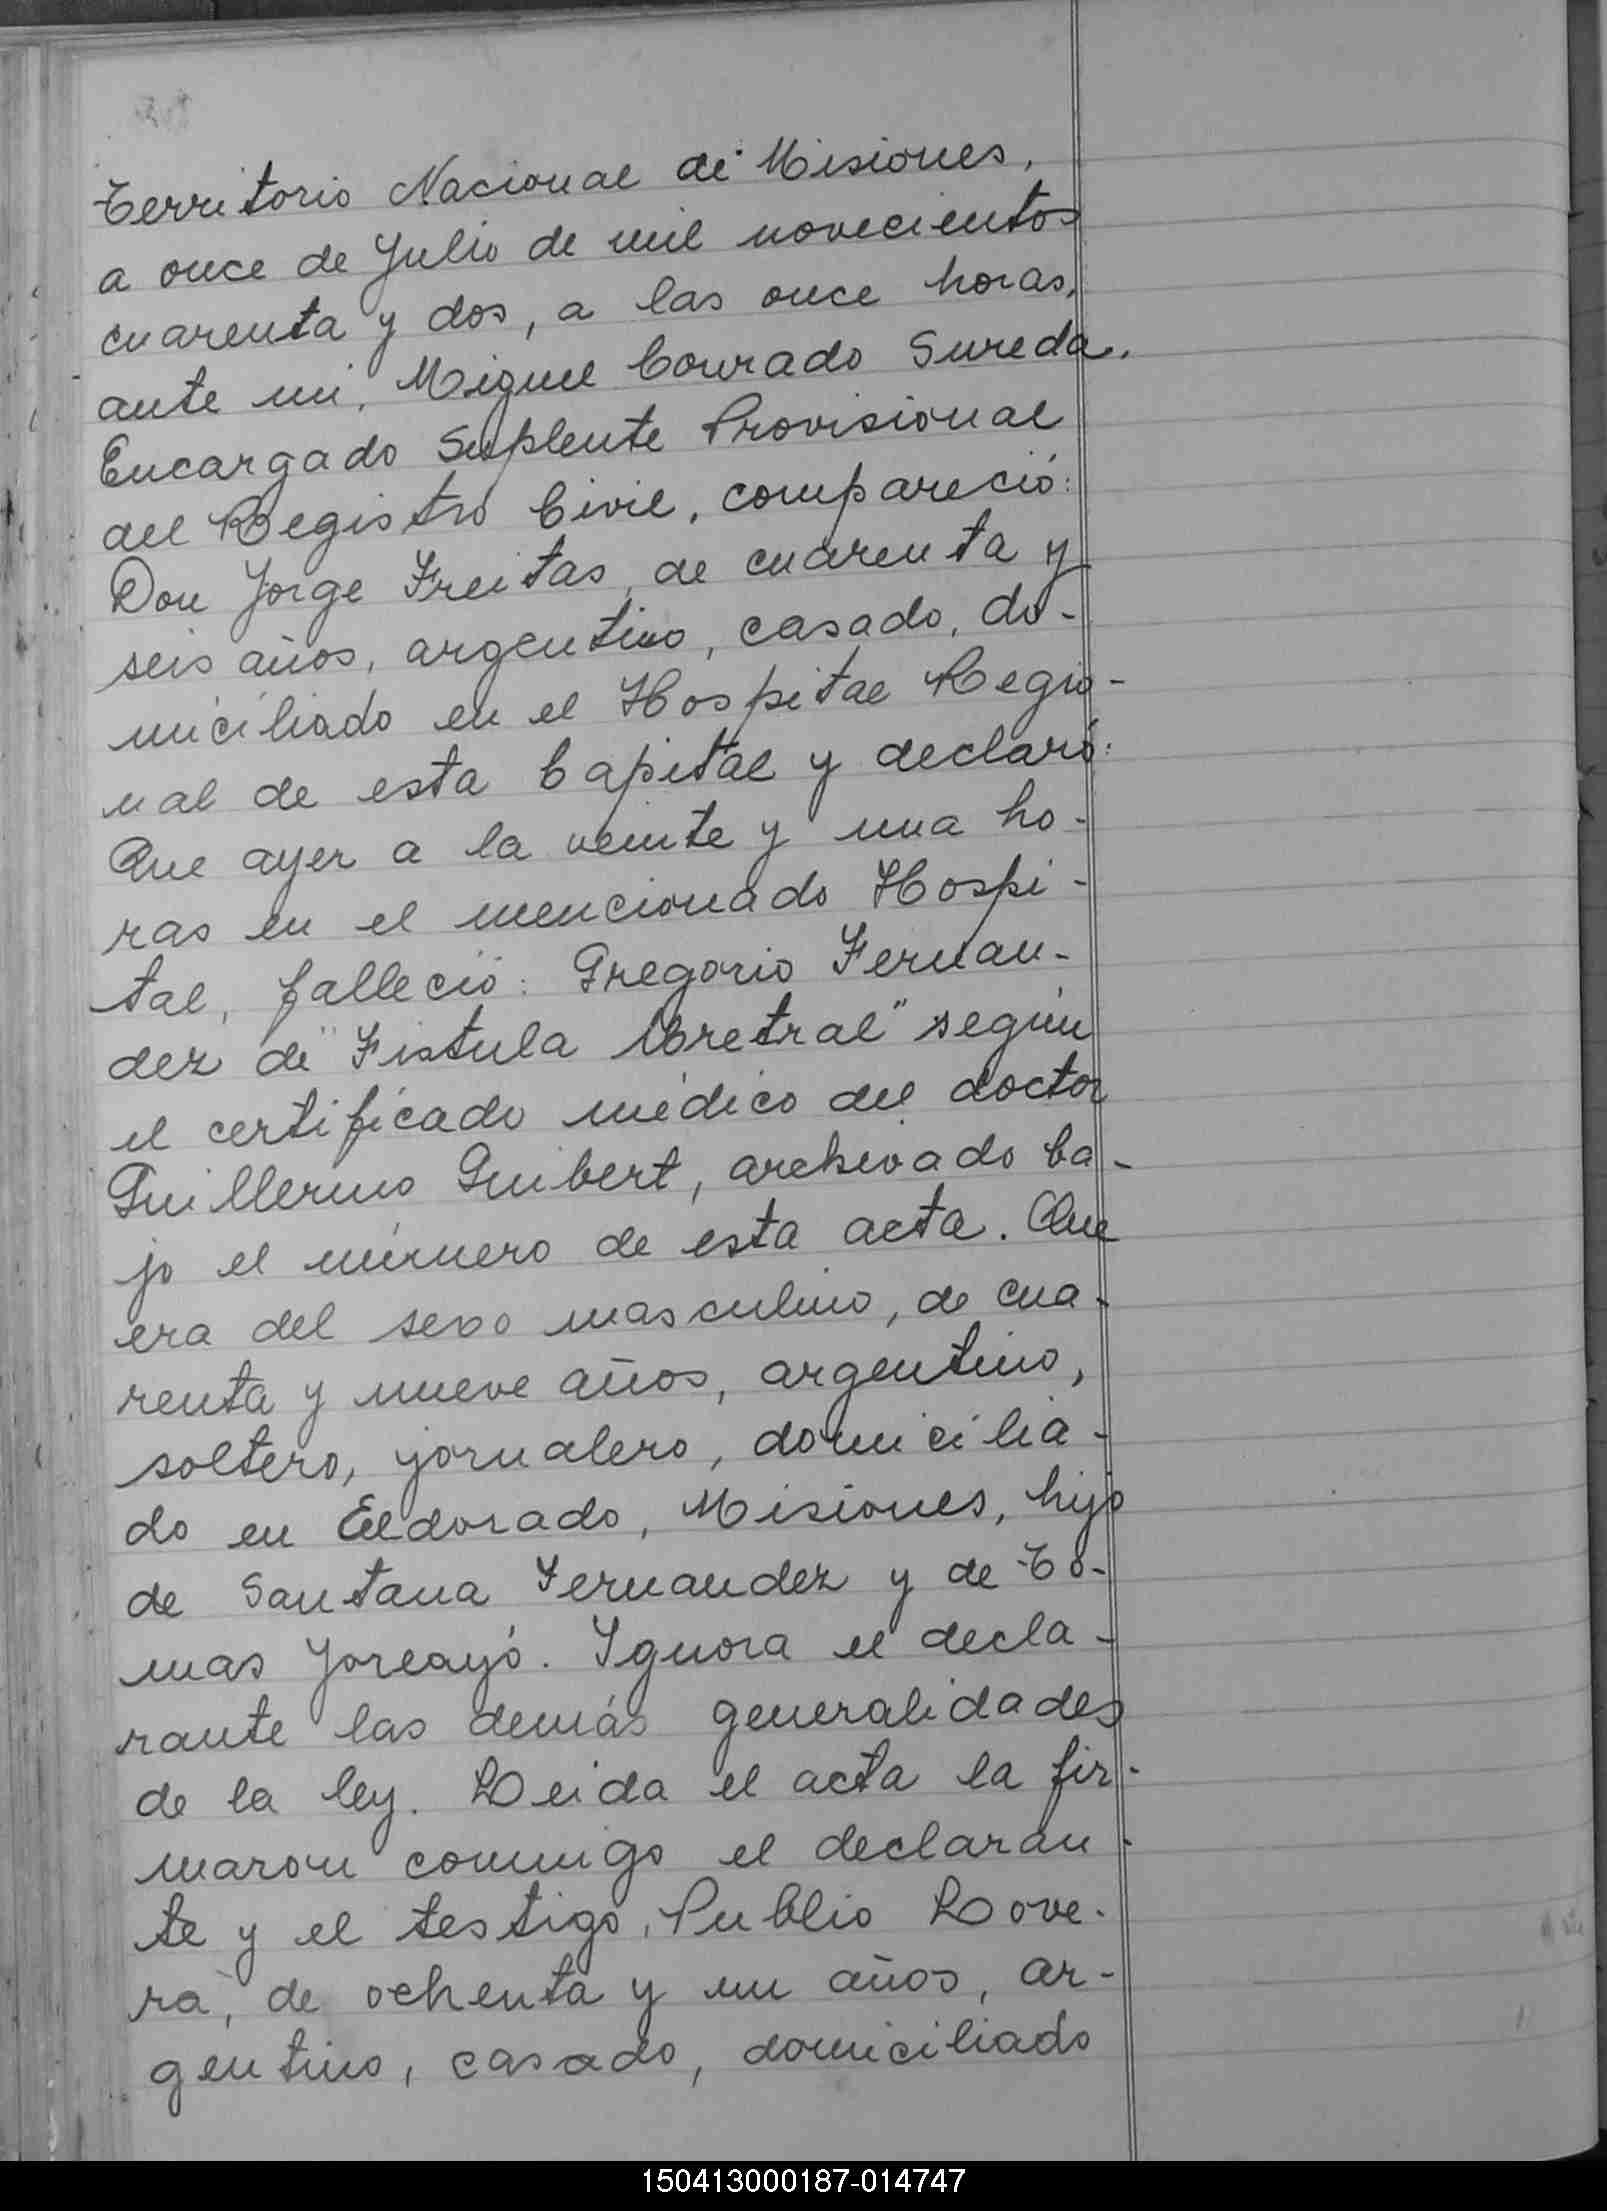 Territorio Nacional de Misiones,
a once de Julio de mil novecientos
cuarenta y dos, a las once horas,
ante mi, Miguel Conrado Sureda,
Encargado Suplente Provisional
del Registro Civil, compareció:
Don Jorge Freitas, de cuarenta y
seis años, argentino, casado, do-
miciliado en el Hospital Regio-
nal de esta Capital y declaró:
Que ayer a la veinte y una ho-
ras en el mencionado Hospi-
tal, falleció: Gregorio Fernan-
dez de "Fistula Uretral" según
el certificado médico del doctor
Guillermo Guibert, archivado ba-
jo el número de esta acta. Que
era del sexo masculino, de cua-
renta y nueve años, argentino,
soltero, jornalero, domicilia-
do en Eldorado, Misiones, hijo
de Santana Fernandez y de To-
mas . Ignora el decla-
rante las demás generalidades
de la ley. Leida el acta la fir-
maron conmigo el declaran-
te y el testigo, Publio Love-
ra, de ochenta y un años, ar-
gentino, casado, domiciliado
150413000187-014747